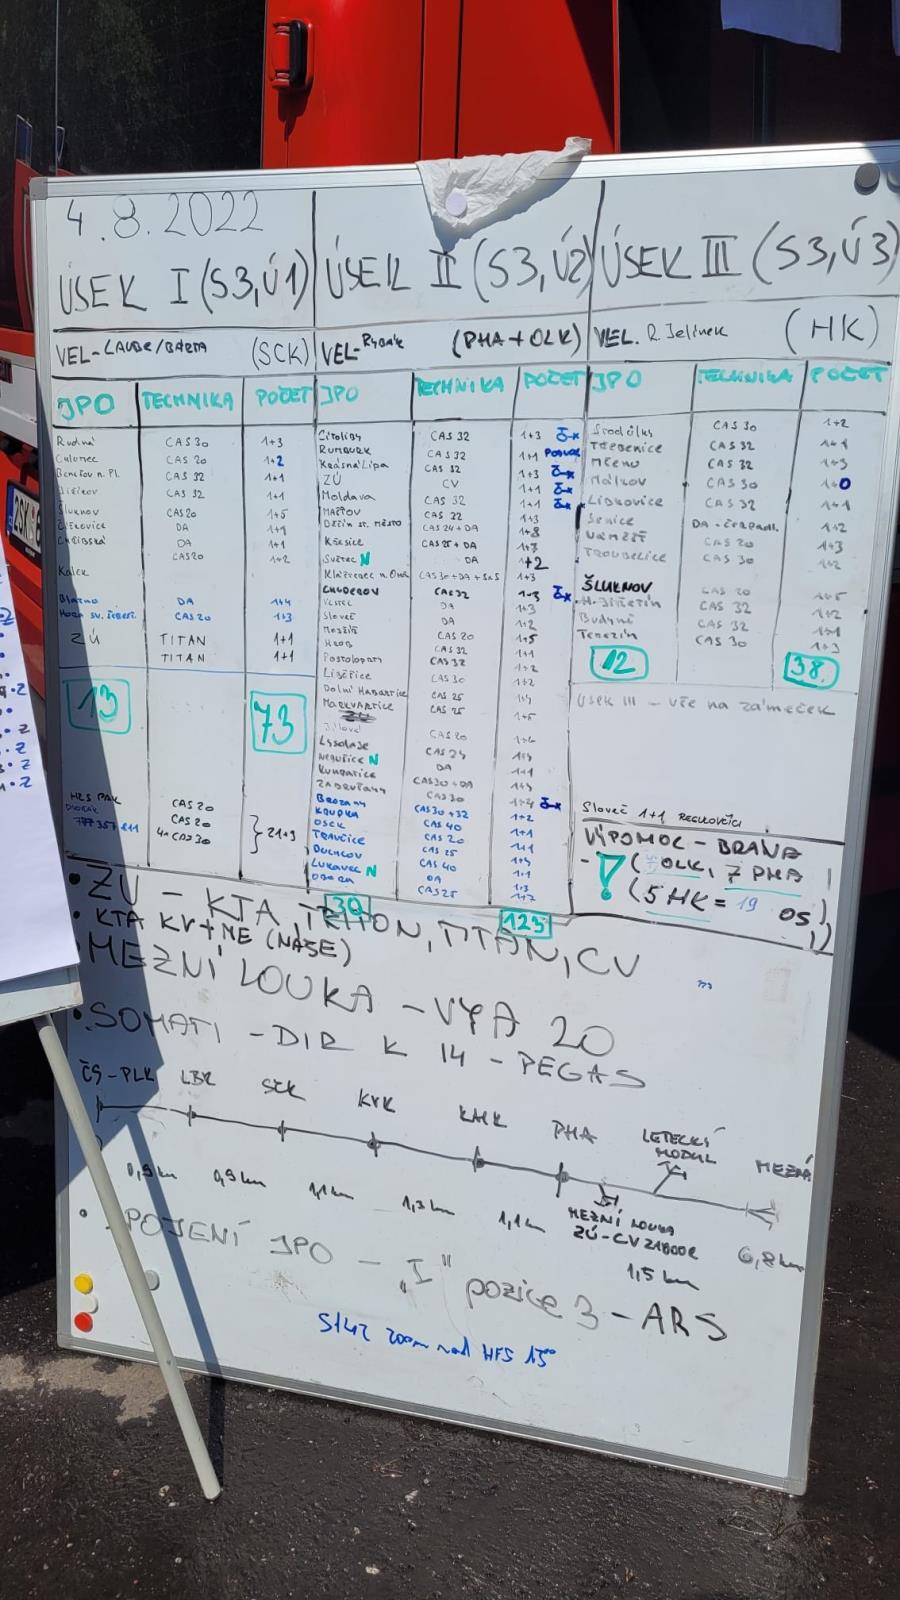 4.8.2022
ÚSEK I (S3,Ú1)
VEL- LAUBE/BÁRTA (SCK)
JPO TECHNIKA POČET
Rudná CAS 30 1+3
CAS 20 1+2
Benešov n. Pl. CAS 32 1+1
CAS 32 1+1
Šluknov CAS 20 1+5
DA
Chřibská DA 1+1
CAS 20 1+2
Kalek
Blatno DA 1+4
CAS 20 1+3
ZÚ TITAN 1+1
TITAN 1+1
13 73
HZS PAK CAS 20
CAS 20
777 357 211 4x CAS 30 } 21+3
ÚSEK II (S3,Ú2)
VEL- Rybák (PHA+OLK)
JPO TECHNIKA POČET
Cítoliby CAS 32 1+3
RUMBURK CAS 32 1+1
Krásná Lípa CAS 32 1+3
ZÚ CV 1+1
Moldava CAS 32 1+1
MAŠŤOV CAS 32 1+3
DĚČÍN st. MĚSTO CAS 24 + DA 1+8
CAS 25 + DA
Světec N DA 1+2
CAS 32 1+3
DA 1+3
DA 1+2
CAS 20 1+5
HROB CAS 32 1+1
Postoloprty CAS 32 1+2
Liběšice CAS 30 1+2
Dolní Habartice CAS 25
MARKVARTICE CAS 25 1+5
Jílové CAS 20
CAS 24
NEBUŽICE N DA 1+1
KUNRATICE CAS 30 + DA
CAS 30 1+4
BROZANY CAS 30 + 32 1+2
KRUPKA CAS 40 1+1
OSEK CAS 20
TRAVČICE CAS 25
DUCHCOV CAS 40
LUKAVEC N DA 1+3
OBORA CAS 25
30 123
ÚSEK III (S3,Ú3)
VEL. R. Jelínek (HK)
JPO TECHNIKA POČET
CAS 30 1+2
Třebenice CAS 32 1+1
Mšeno CAS 32 1+3
Málkov CAS 30 1+0
Libkovice CAS 32 1+1
Senice 1+2
NÁMĚŠŤ CAS 20 1+3
TROUBELICE CAS 30 1+2
ŠLUKNOV CAS 20 1+5
CAS 32 1+2
Budyně CAS 32 1+1
Terezín CAS 30 1+3
12 38
ÚSEK III - vše na zámeček
Sloveč 1+1
VÝPOMOC - BRANA
- ! (7 OLK, 7 PHA
(5 HK = 19 OS.)
• ZÚ - KTA, TRITON, TITAN, CV
• KTA KV + ME (NAŠE)
• MEZNÍ LOUKA - VÝA 20
• SOMATI - DIR K 14 - PEGAS
ČS-PLK LBK SČK KVK KHK PHA LETECKÝ MODUL MEZNÁ
0,9 km 0,9 km 1,1 km 1,3 km 1,1 km MEZNÍ LOUKA 6,8 km
ZÚ-CV ZÁBOOR
1,5 km
• SPOJENÍ JPO - „I" pozice 3 - ARS
S142 200m nad HFS 15⁰⁰